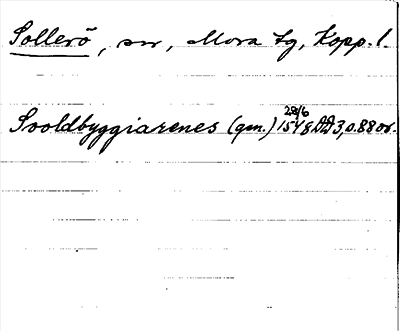 Sollerö, sn, Mora tg, Kopp. l.
Sooldbyggiarenes (gen.) 28/6 1548 DD 3, o. 88 or.